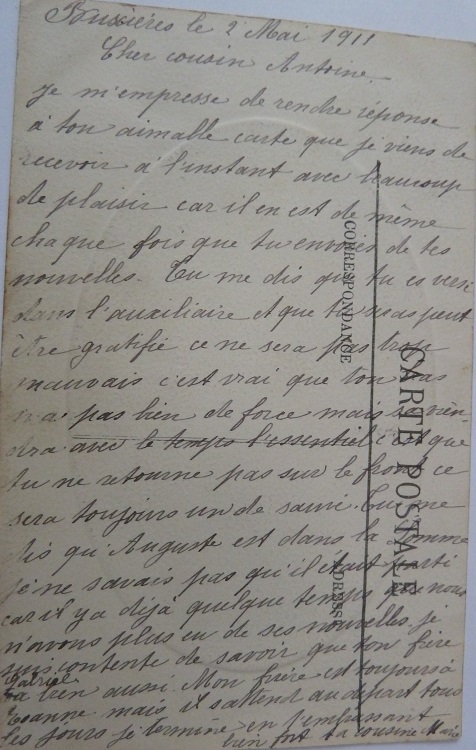 Bussières le 2 Mai 1911
Cher cousin Antoine.
je m'empresse de rendre réponse
à ton aimable carte que je viens de
recevoir à l'instant avec beaucoup
de plaisir car il en est de même
chaque fois que tu envoies de tes
nouvelles. Tu me dis que tu es versé
dans l'auxiliaire et que tu seras peut
être gratifié ce ne sera pas trop
mauvais c'est vrai que ton bras
n'a pas bien de force mais la vien-
dra avec le temps l'essentiel c'est que
tu ne retourne pas sur le front ce
sera toujours un de sauvé. Tu me
dis qu'Auguste est dans la Somme
je ne savais pas qu'il était parti
car il y a déjà quelque temps que nous
n'avons plus eu de ses nouvelles. je
suis contente de savoir que ton frère
Gabriel
va bien aussi. Mon frère est toujours à
Roanne mais il s'attend au départ tous
les jours je termine en t'embrassant
bien fort ta cousine Marie
CORRESPONDANCE
CARTE POSTALE
ADRESSE